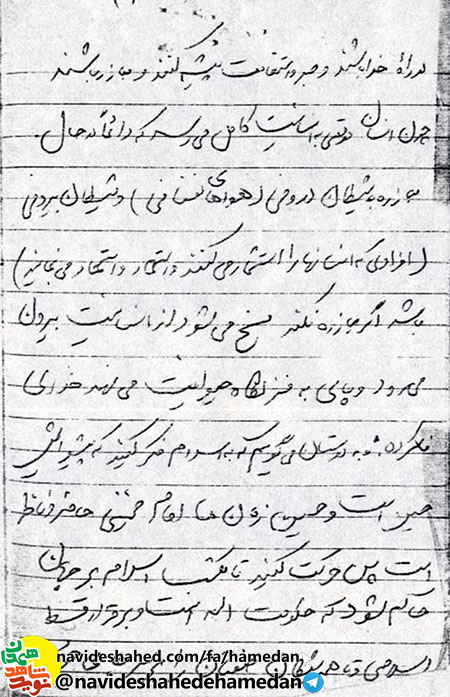 در راه خدا باشند و صبر و استقامت پیشه کنند و مبارز باشند
چون انسان وقتی به انسانیت کامل می‌رسد که دائماً در حال
مبارزه با شیطان درونی (هواهای نفسانی) و شیطان بیرونی
(افرادی که انسانها را استثمار می‌کنند و استعمار و استحمار می‌نمایند)
باشد اگر مبارزه نکند مسخ می‌شود از انسانیت بیرون
می‌رود و پای به قرارگاه حیوانیت می‌نهد خدای
نکرده. و به دوستان می‌گویم که به اسلام فکر کنید که پیشوایش
حسین است و حسین زمان ما امام خمینی حاضر و ناظر
است پس حرکت کنید تا مکتب اسلام بر جهان
حاکم شود که حکومت الله است و برقراری قسط
اسلامی و
نوید شاهد همدان
navideshahed.com/fa/hamedan
@navideshahedehamedan